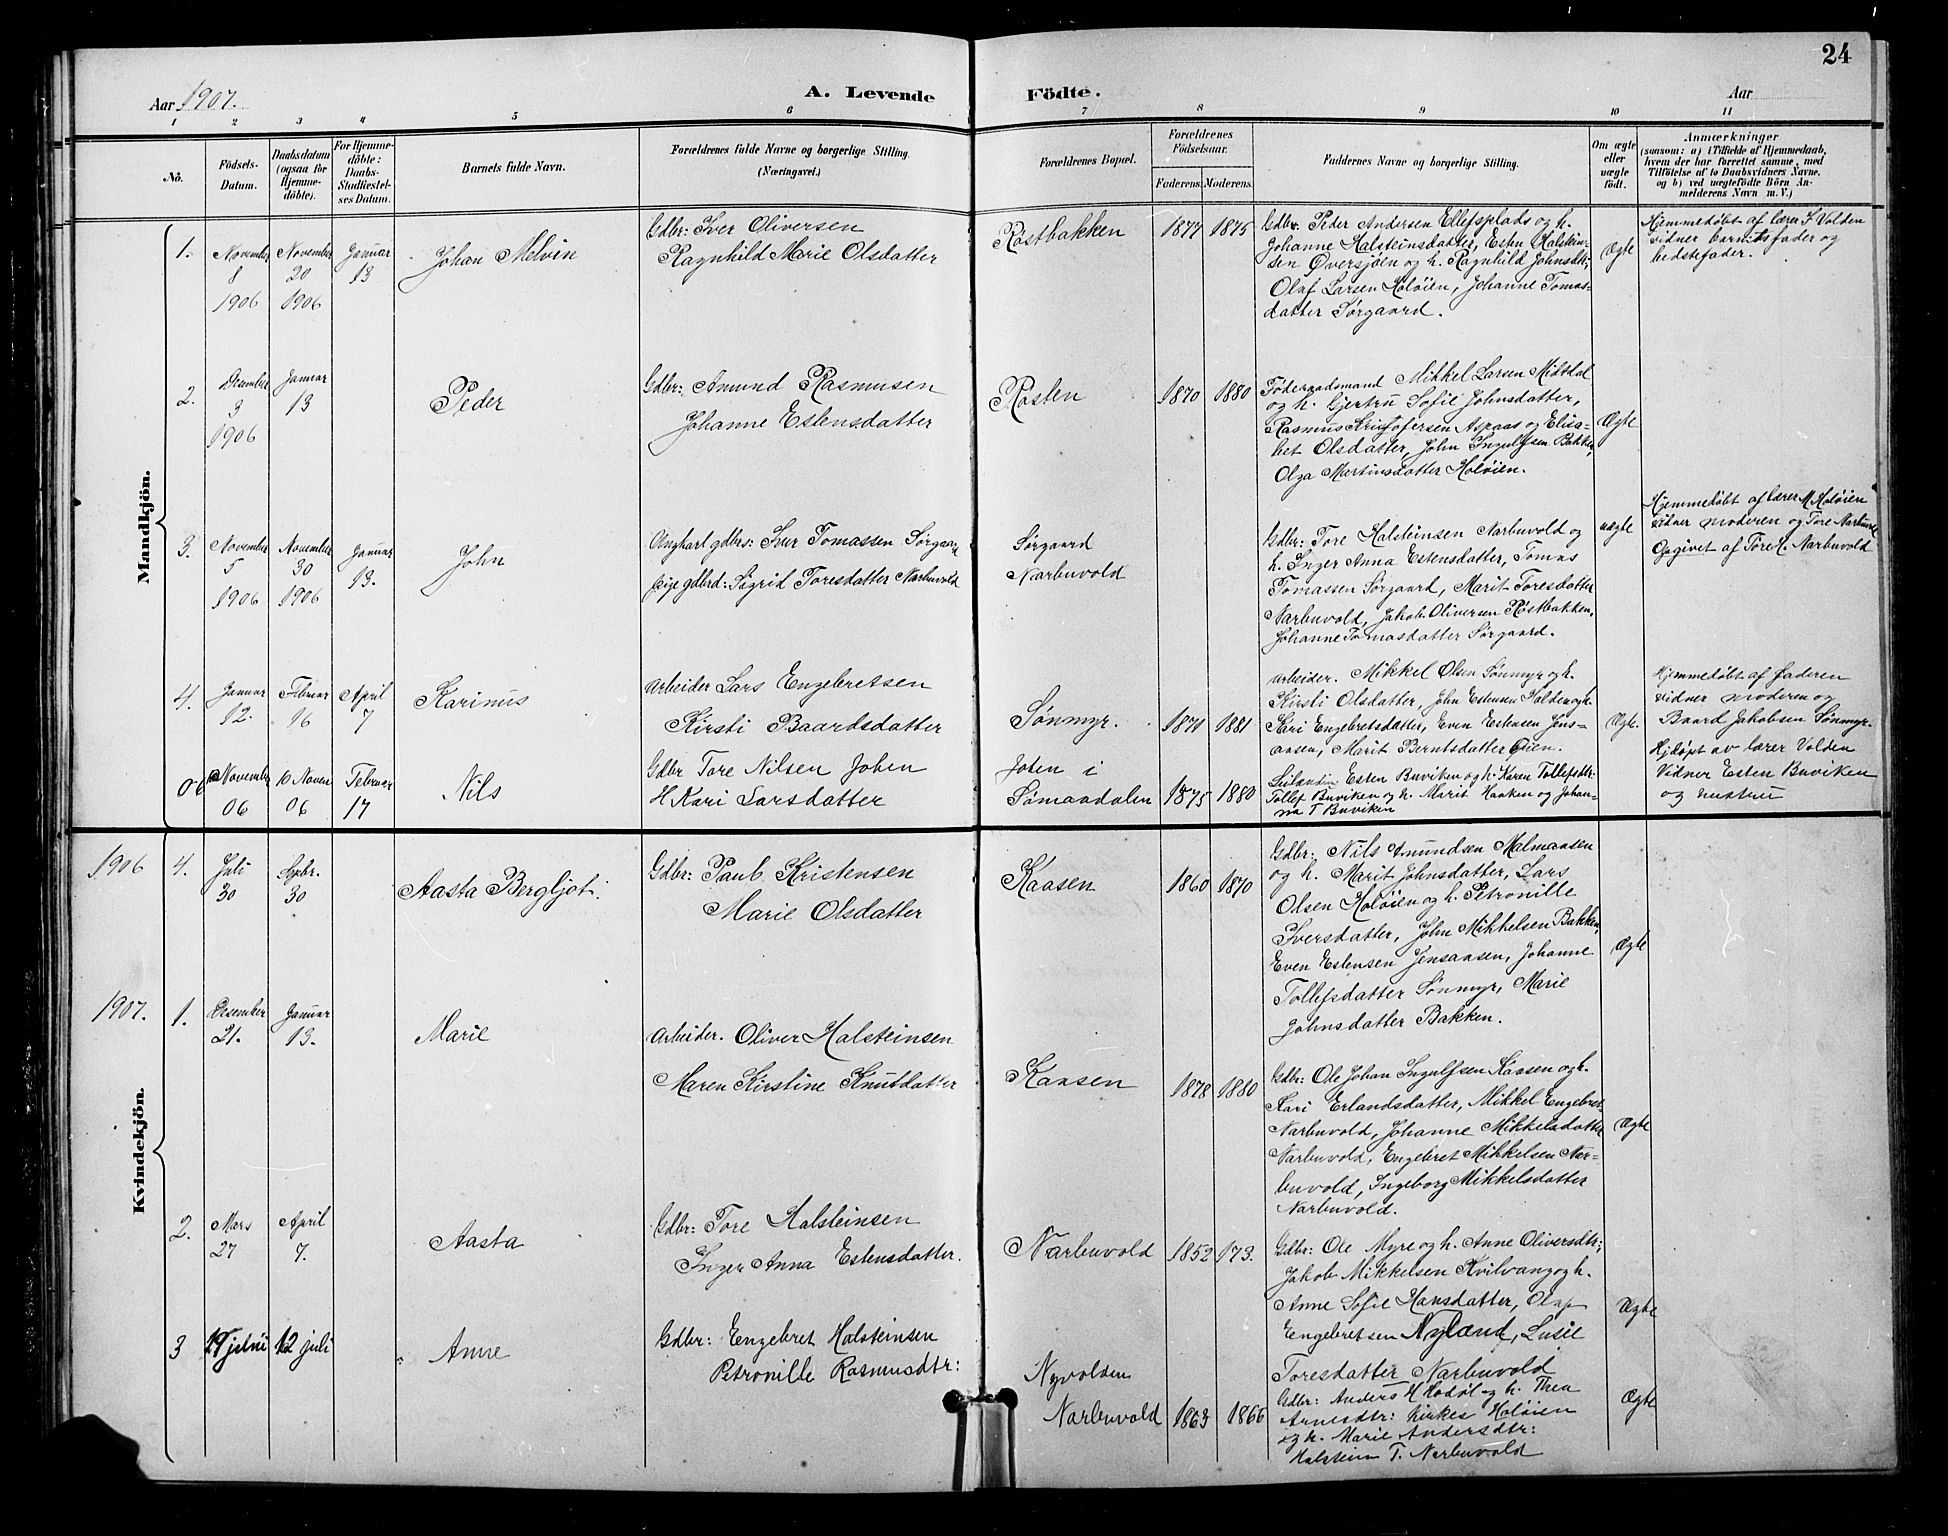 24
Aar 1907.
A. Levende Födte.
Aar
1 2 3 4 5 6 7 8 9 10 11
Nô.
Födsels-
Datum.
Daabsdatum
(ogsaa för
Hjemme-
döbte).
For Hjemme-
döbte:
Daabs-
Stadfæstel-
ses Datum.
Barnets fulde Navn.
Forældrenes fulde Navne og borgerlige Stilling.
(Næringsvei.)
Forældrenes Bopæl.
Forældrenes
Födselsaar.
Faderens. Moderens.
Faddernes Navne og borgerlige Stilling.
Om ægte
eller
uægte
födt.
Anmærkninger
(saasom: a) i Tilfælde af Hjemmedaab,
hvem der har forrettet samme, med
Tilföielse af to Daabsvidners Navne.
og b) ved uægtefödte Börn An-
melderens Navn m. V.)
Mandkjön.
1.
November
8
1906
November
20
1906
Januar
13
Johan Melvin
Gdbr: Iver Oliversen
Ragnhild Marie Olsdatter
Røstbakken
1877 1875
Gdbr. Peder Andersen Ellefsplads og h.
Johanne Halsteinsdatter, Esten Halstein-
sen Øversjøen og h. Ragnhild Johnsdtr,
Olaf Larsen Holøien, Johanne Tomas-
datter Sørgaard.
Ægte
Hjemmedøbt af lærer I Volden
vidner barnets fader og
bedstefader.
2.
Desember
3
1906
Januar
13
Peder
Gdbr: Amund Rasmusen
Johanne Estensdatter
Røsten
1870 1880
Føderaadsmand Mikkel Larsen Midtdal
og h. Gjertru Sofie Johnsdatter,
Rasmus Kristofersen Aspaas og Elisa-
bet Olsdatter, John Ingulfsen Bakken,
Olga Martinsdatter Holøien.
Ægte
3.
November
5
1906
November
30
1906
Januar
13.
John
Ungkarl gdbrs: Iver Tomassen Sørgaard
Pige gdbrd: Sigrid Toresdatter Narbuvold
Sørgaard
Narbuvold
Gdbr: Tore Halsteinsen Narbuvold og
h. Inger Anna Estensdatter, Tomas
Tomassen Sørgaard, Marit Toresdatter
Narbuvold, Jakob Oliversen Røstbakken,
Johanne Tomasdatter Sørgaard.
uægte
Hjemmedøbt af lærer M Holøien
vidner moderen og Tore Narbuvold
Opgivet af Tore H. Narbuvold
4.
Januar
12.
Februar
16
April
7
Karinus
Arbeider Lars Engebretsen
Kirsti Baardsdatter
Sønmyr.
1871 1881
Arbeider. Mikkel Olsen Sønmyr og h.
Kirsti Olsdatter, John Estensen Volden og h.
Kari Engebretsdatter, Even Estensen Jens-
aasen, Marit Berntsdatter Øien.
Ægte.
Hjemmedøbt af faderen
vidner moderen og
Baard Jakobsen Sønmyr.
November
06
10 Noven
06
Februar
17
Nils
Gdbr Tore Nilsen Joten
H Kari Larsdatter
Joten i
Sømaadalen
1875 1880
Esten Buviken og h. Karen Tollefsdtr.
Tollef Buviken og h. Marit Haaken og Johan-
na T Buviken
Hjdøpt av lærer Volden
Vidner Esten Buviken
og hustru
Kvindekjön.
1906
4.
Juli
30
Spbr.
30
Aasta Bergljot.
Gdbr: Paul Kristensen
Marie Olsdatter
Kaasen
1860 1870
Gdbr: Nils Amundsen Malmaasen
og h. Marit Johnsdatter, Lars
Olsen Holøien og h. Petronille
Iversdatter, John Mikkelsen Bakken,
Even Estensen Jensaasen, Johanne
Tollefsdatter Sønmyr, Marie
Johnsdatter Bakken.
Ægte
1907.
1.
Desember
21.
Januar
13.
Marie
Arbeider. Oliver Halsteinsen
Maren Kirstine Knutdatter
Kaasen
1878 1880
Gdbr: Ole Johan Ingulfsen Kaasen og h.
Kari Erlandsdatter, Mikkel Engebret-
Narbuvold, Johanne Mikkelsdatter
Narbuvold, Engebret Mikkelsen Nar-
buvold, Ingeborg Mikkelsdatter
Narbuvold.
Ægte
2.
Mars
27
April
7.
Aasta
Gdbr: Tore Halsteinsen
Inger Anna Estensdatter.
Narbuvold
1852 173.
Gdbr: Ole Myre og h. Anne Oliversdtr:,
Jakob Mikkelsen Kvilvang og h.
Anne Sofie Hansdatter, Olaf
Engebretsen Nyland, Lusie
Toresdatter Narbuvold
Ægte
3
19 juni
12 juli
Anne
Gdbr: Engebret Halsteinsen
Petronille Rasmusdtr:
Nyvolden
Narbuvold
1863 1866
Gdbr: Anders H Hodøl og h. Thea
Arnesdtr: Kirkes Holøien
og h. Marie Andersdtr:
Halstein T. Narbuvold
Ægte